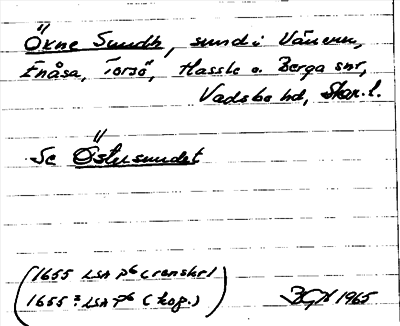 Ökne Sundh, sund i Vänern,
Enåsa, Torsö, Hassle o. Berga snr,
Vadsbo hd, Skar. l.
Se Östersundet
(1655 LSA P6 (renskr)
1655? LSA P6 (kop.))
1965